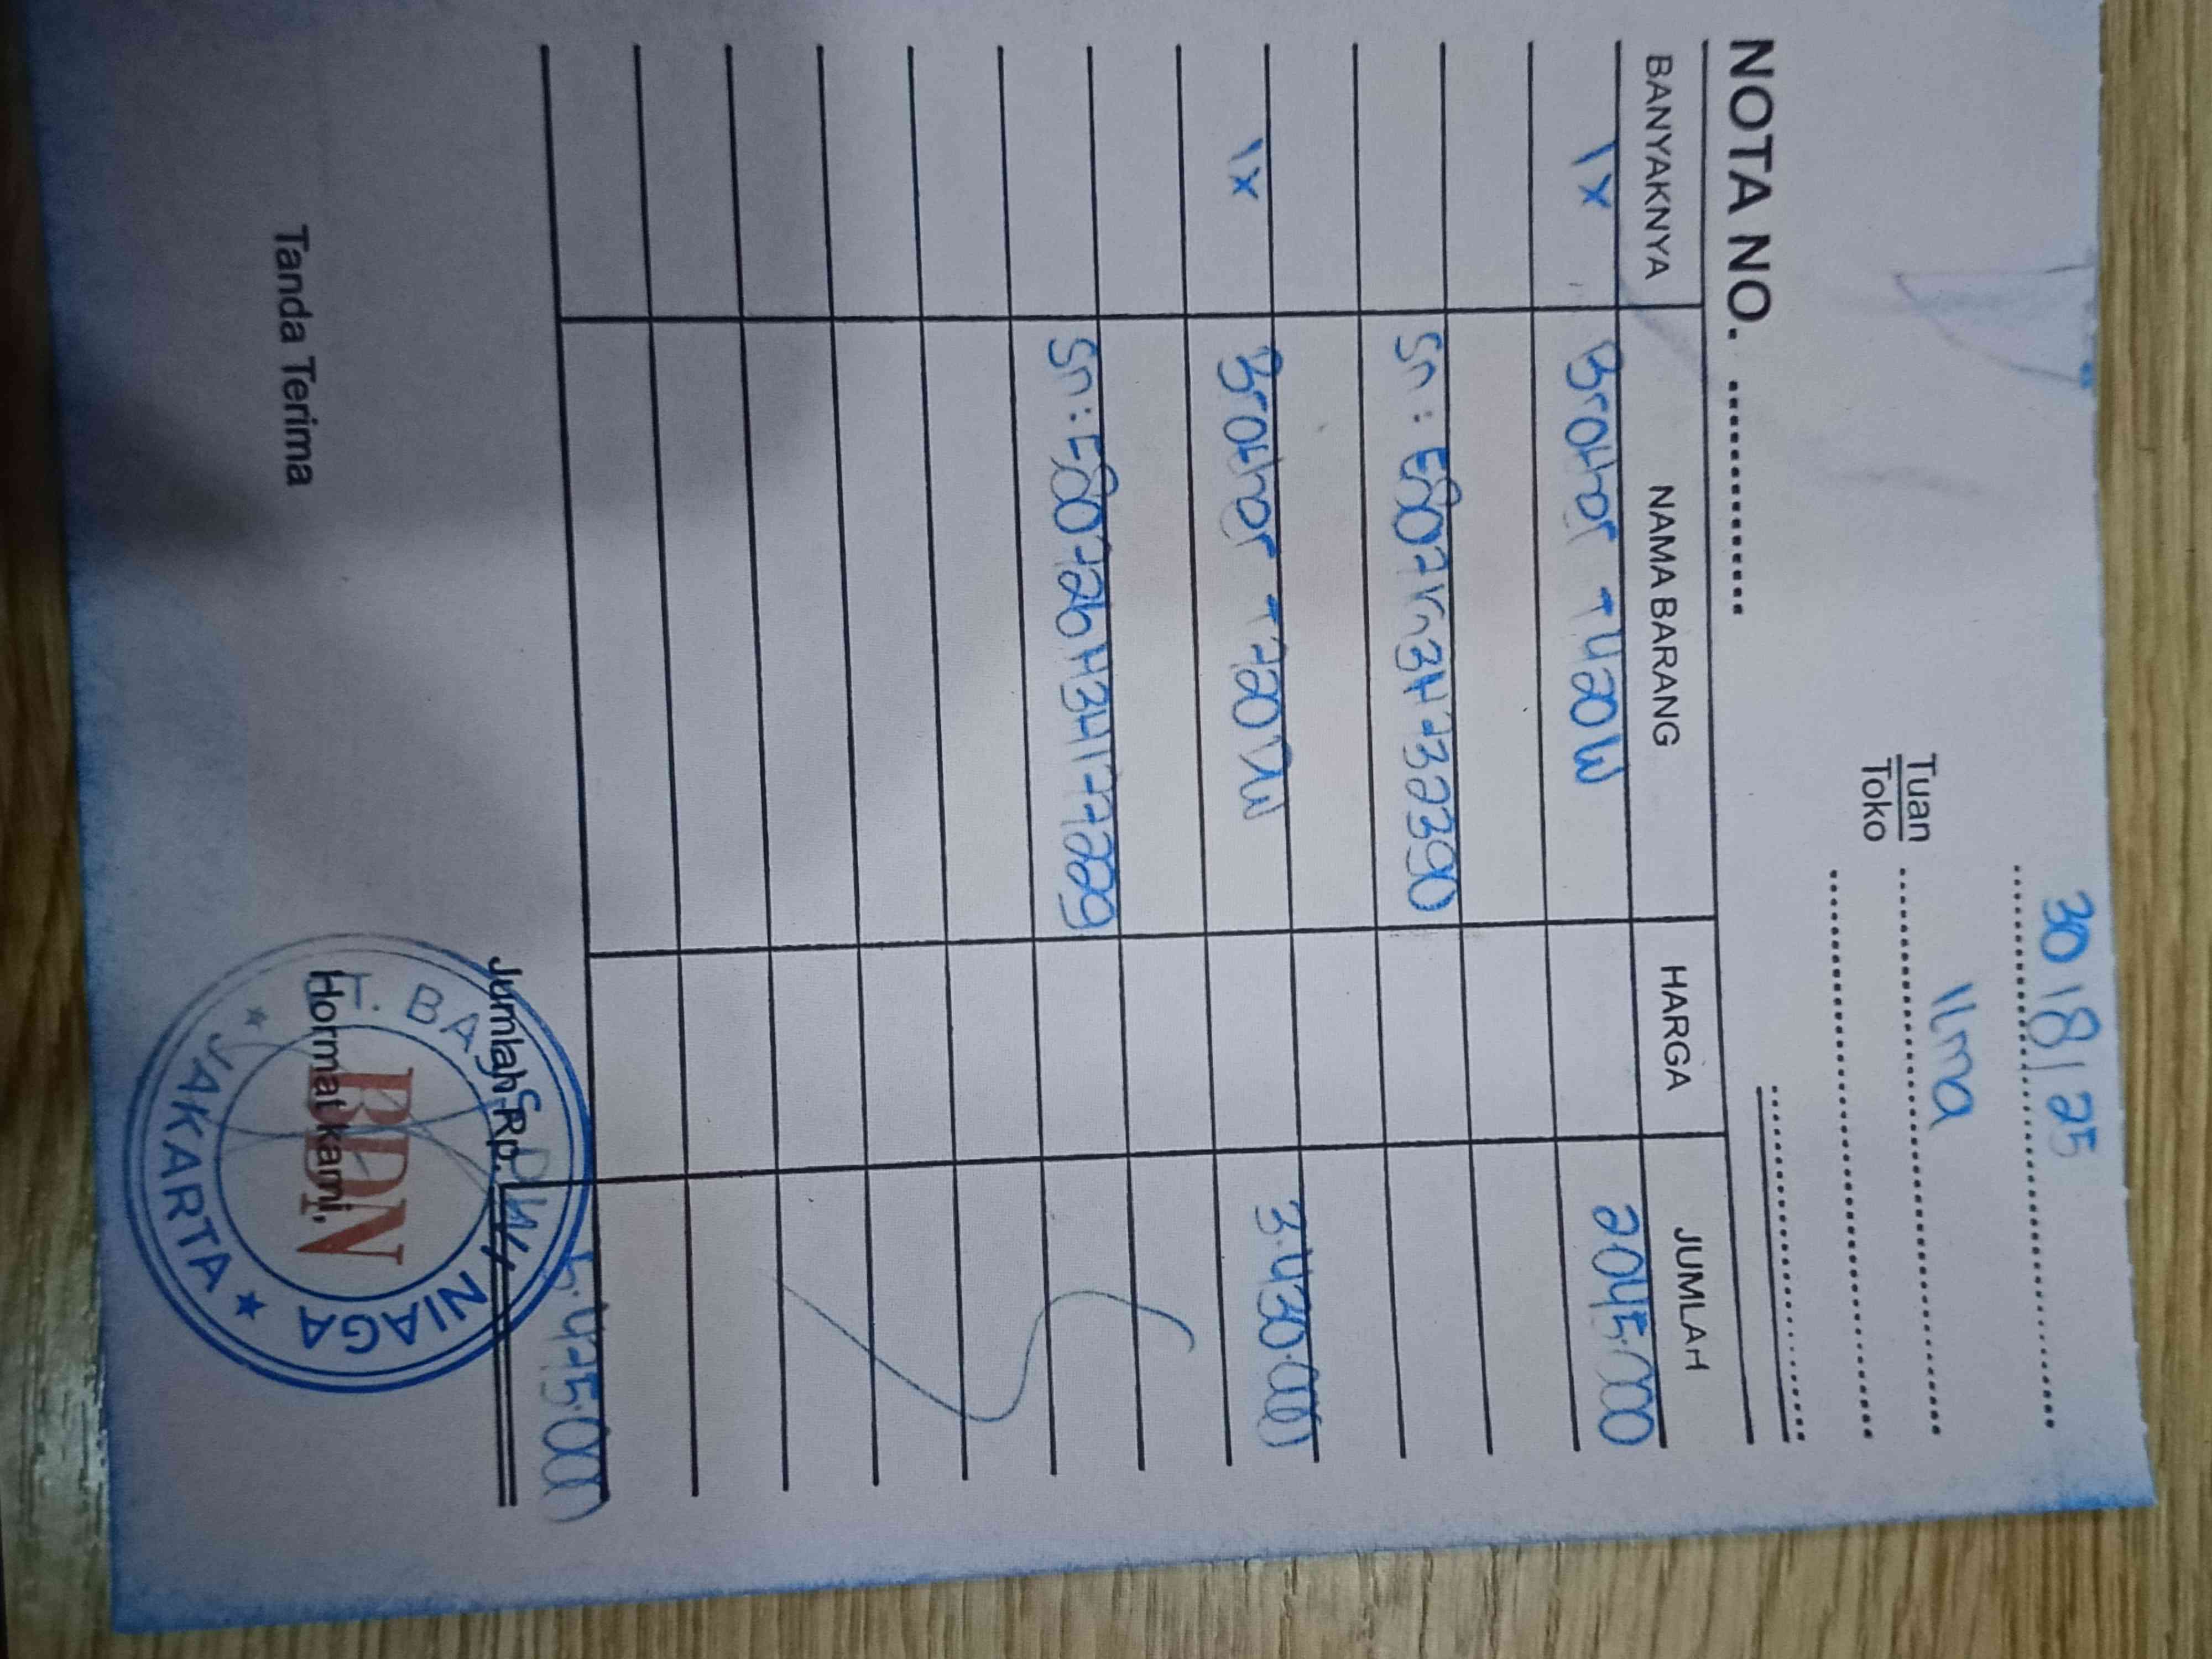 30/8/25
Tuan Ilma
Toko
NOTA NO.
BANYAKNYA NAMA BARANG HARGA JUMLAH
1x Brother T420W 2.045.000
Sn: E80
1x Brother T720DW 3.430.000
Sn: E80726H3H177229
Jumlah Rp. 5.475.000
Tanda Terima Hormat kami,
NIAGA
BDN
★ JAKARTA ★